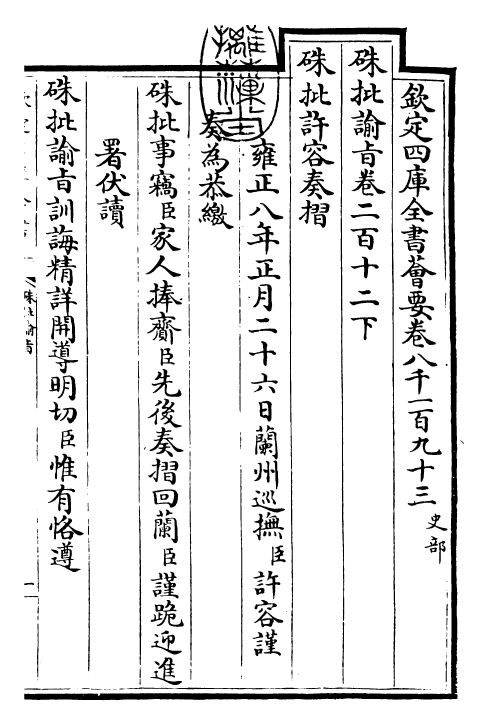 欽定四庫全書薈要卷八千一百九十三 史部
硃批諭旨卷二百十二下
硃批許容奏摺
雍正八年正月二十六日蘭州巡撫臣許容謹
奏為恭繳
硃批事竊臣家人捧齎臣先後奏摺回蘭臣謹跪迎進
署伏讀
硃批諭旨訓誨精詳開導明切臣惟有恪遵
硃批諭旨
一